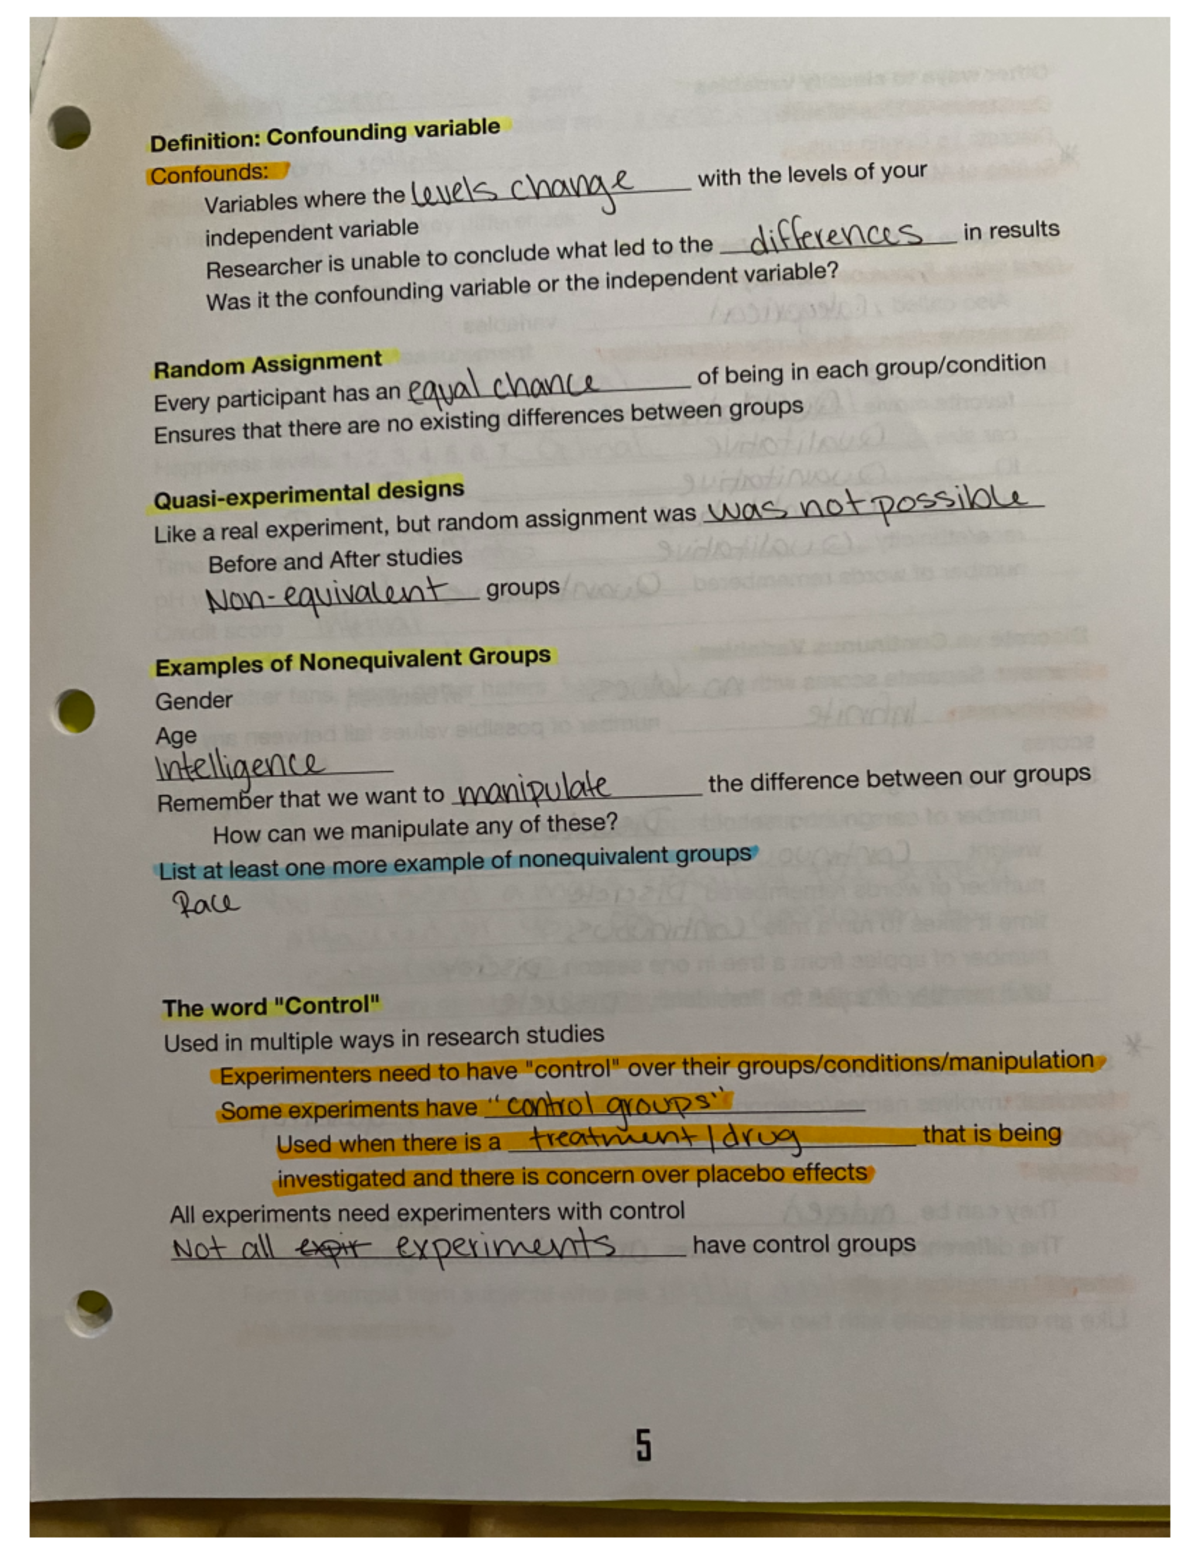 Definition: Confounding variable
Confounds:
Variables where the levels change with the levels of your
independent variable
Researcher is unable to conclude what led to the differences in results
Was it the confounding variable or the independent variable?
Random Assignment
Every participant has an equal chance of being in each group/condition
Ensures that there are no existing differences between groups
Quasi-experimental designs
Like a real experiment, but random assignment was was not possible
Before and After studies
Non-equivalent groups
Examples of Nonequivalent Groups
Gender
Age
Intelligence
Remember that we want to manipulate the difference between our groups
How can we manipulate any of these?
List at least one more example of nonequivalent groups
Race
The word "Control"
Used in multiple ways in research studies
Experimenters need to have "control" over their groups/conditions/manipulation
Some experiments have "control groups"
Used when there is a treatment/drug that is being
investigated and there is concern over placebo effects
All experiments need experimenters with control
Not all experiments have control groups
5